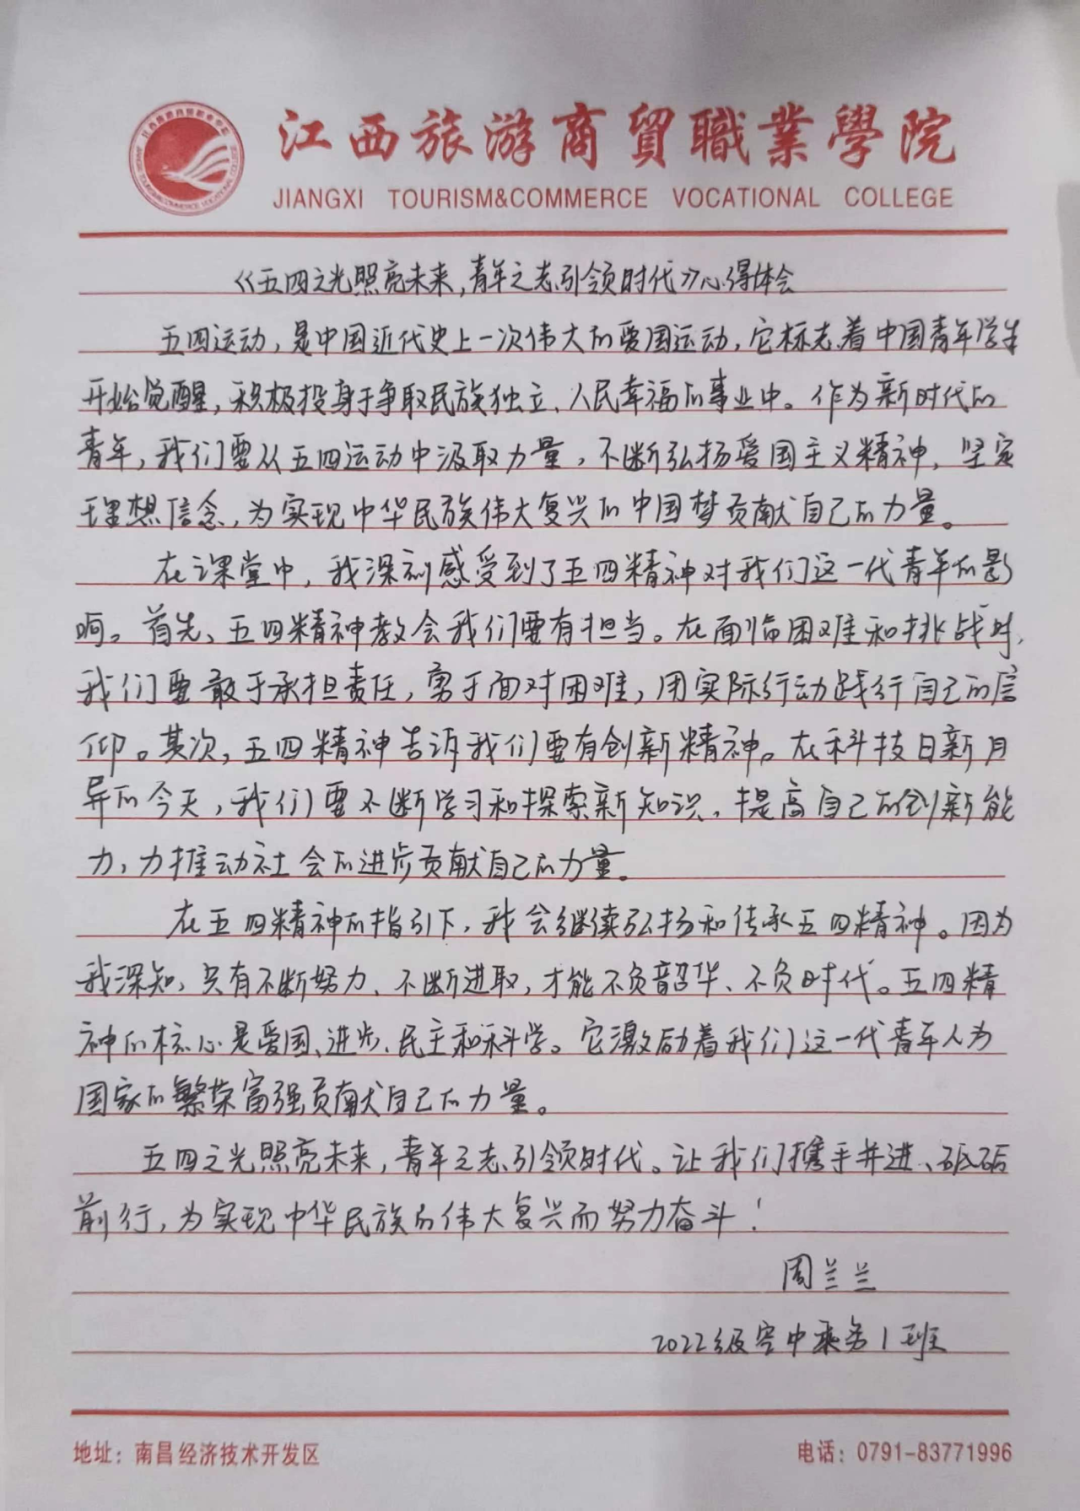 江西旅游商貿職業學院
JIANGXI TOURISM&COMMERCE VOCATIONAL COLLEGE
《五四之光照亮未来,青年之志引领时代》心得体会
五四运动,是中国近代史上一次伟大的爱国运动,它标志着中国青年学生
开始觉醒,积极投身于争取民族独立、人民幸福的事业中。作为新时代的
青年,我们要从五四运动中汲取力量,不断弘扬爱国主义精神,坚定
理想信念,为实现中华民族伟大复兴的中国梦贡献自己的力量。
在课堂中,我深刻感受到了五四精神对我们这一代青年的影
响。首先、五四精神教会我们要有担当。在面临困难和挑战时,
我们要敢于承担责任,勇于面对困难,用实际行动践行自己的信
仰。其次,五四精神告诉我们要有创新精神。在科技日新月
异的今天,我们要不断学习和探索新知识,提高自己的创新能
力,力推动社会的进步贡献自己的力量。
在五四精神的指引下,我会继续弘扬和传承五四精神。因为
我深知,只有不断努力、不断进取,才能不负韶华、不负时代。五四精
神的核心是爱国、进步、民主和科学。它激励着我们这一代青年人为
国家的繁荣富强贡献自己的力量。
五四之光照亮未来,青年之志引领时代。让我们携手并进、砥砺
前行,为实现中华民族的伟大复兴而努力奋斗!
周兰兰
2022级空中乘务1班
地址:南昌经济技术开发区
电话:0791-83771996